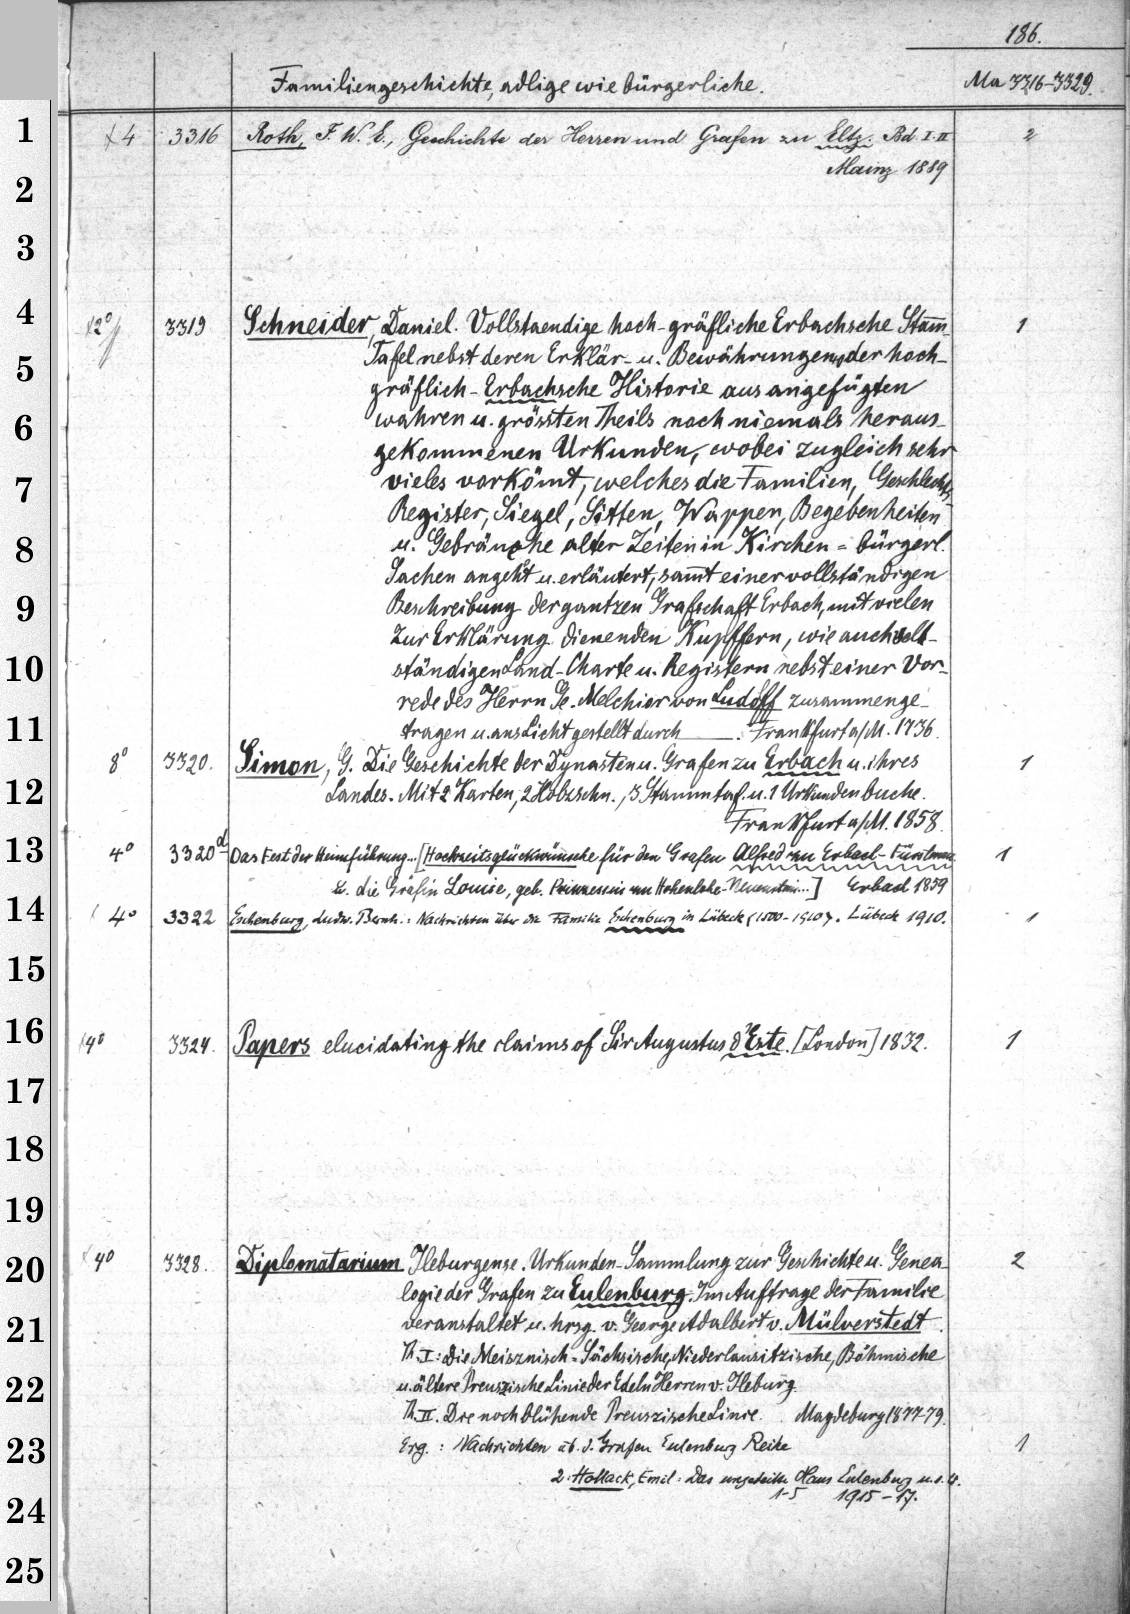 186.
Familiengeschichte, adlige wie bürgerliche. Ma 3316-3329.
1
x4 3316 Roth, F. W. E., Geschichte der Herren und Grafen zu Eltz. Bd I-II 2
Mainz 1889
2
3
4
x2° 3319 Schneider, Daniel. Vollstaendige hoch-gräfliche Erbachsche Stam̅- 1
Tafel nebst deren Erklär- u. Bewährungen der hoch-
5
gräflich-Erbachsche Historie aus angefügten
6
wahren u. grössten Theils noch niemals heraus-
gekommenen Urkunden, wobei zugleich sehr
7
vieles vorkömt, welches die Familien, Geschlechts-
Register, Siegel, Sitten, Wappen, Begebenheiten
8
u. Gebräuche alter Zeiten in Kirchen = bürgerl.
Sachen angeht u. erläutert, sam̅t einer vollständigen
9
Beschreibung der gantzen Grafschaft Erbach, mit vielen
zur Erklärung dienenden Kupffern, wie auch
10
ständigen Land-Charte u. Registern nebst einer Vor-
rede des Herrn Ge. Melchior von Ludolff zusammenge-
11
tragen u. ans Licht gestellt durch ____. Frankfurt a/M. 1736.
8° 3320. Simon, G. Die Geschichte der Dynasten u. Grafen zu Erbach u. ihres 1
12
Landes. Mit 2 Karten, 2 Holzschn., 3 Stammtaf. u. 1 Urkundenbuche.
Frankfurt a/M. 1858.
13
4° 3320d Das Fest der Heimführung... [Hochzeitsglückwünsche für den Grafen Alfred zu Erbach-Fürstenau 1
u. die Gräfin Louise, geb. Prinzessin von Hohenlohe-Neuenstein...] Erbach 1859
14
4° 3322 Eschenburg, Ludw. Bernh.: Nachrichten über die Familie Eschenburg in Lübeck (1500-1910). Lübeck 1910. 1
15
16
x4° 3324. Papers elucidating the claims of Sir Augustus d'Este. [London] 1832. 1
17
18
19
20
x4° 3328. Diplomatarium Ileburgense. Urkunden-Sammlung zur Geschichte u. Genea- 2
logie der Grafen zu Eulenburg. Im Auftrage der Familie
21
veranstaltet u. hrsg. v. George Adalbert v. Mülverstedt.
Th. I: Die Meisznisch-Sächsische, Niederlausitzische, Böhmische
22
u. ältere Preuszische Linie der Edeln Herren v. Ileburg.
Th. II. Die noch blühende Preuszische Linie. Magdeburg 1877-79.
23
Erg.: Nachrichten üb. d. Grafen Eulenburg Reihe 1
2. Hollack, Emil: Das ungeteilte Haus Eulenburg
24
1-5 1915-17.
25